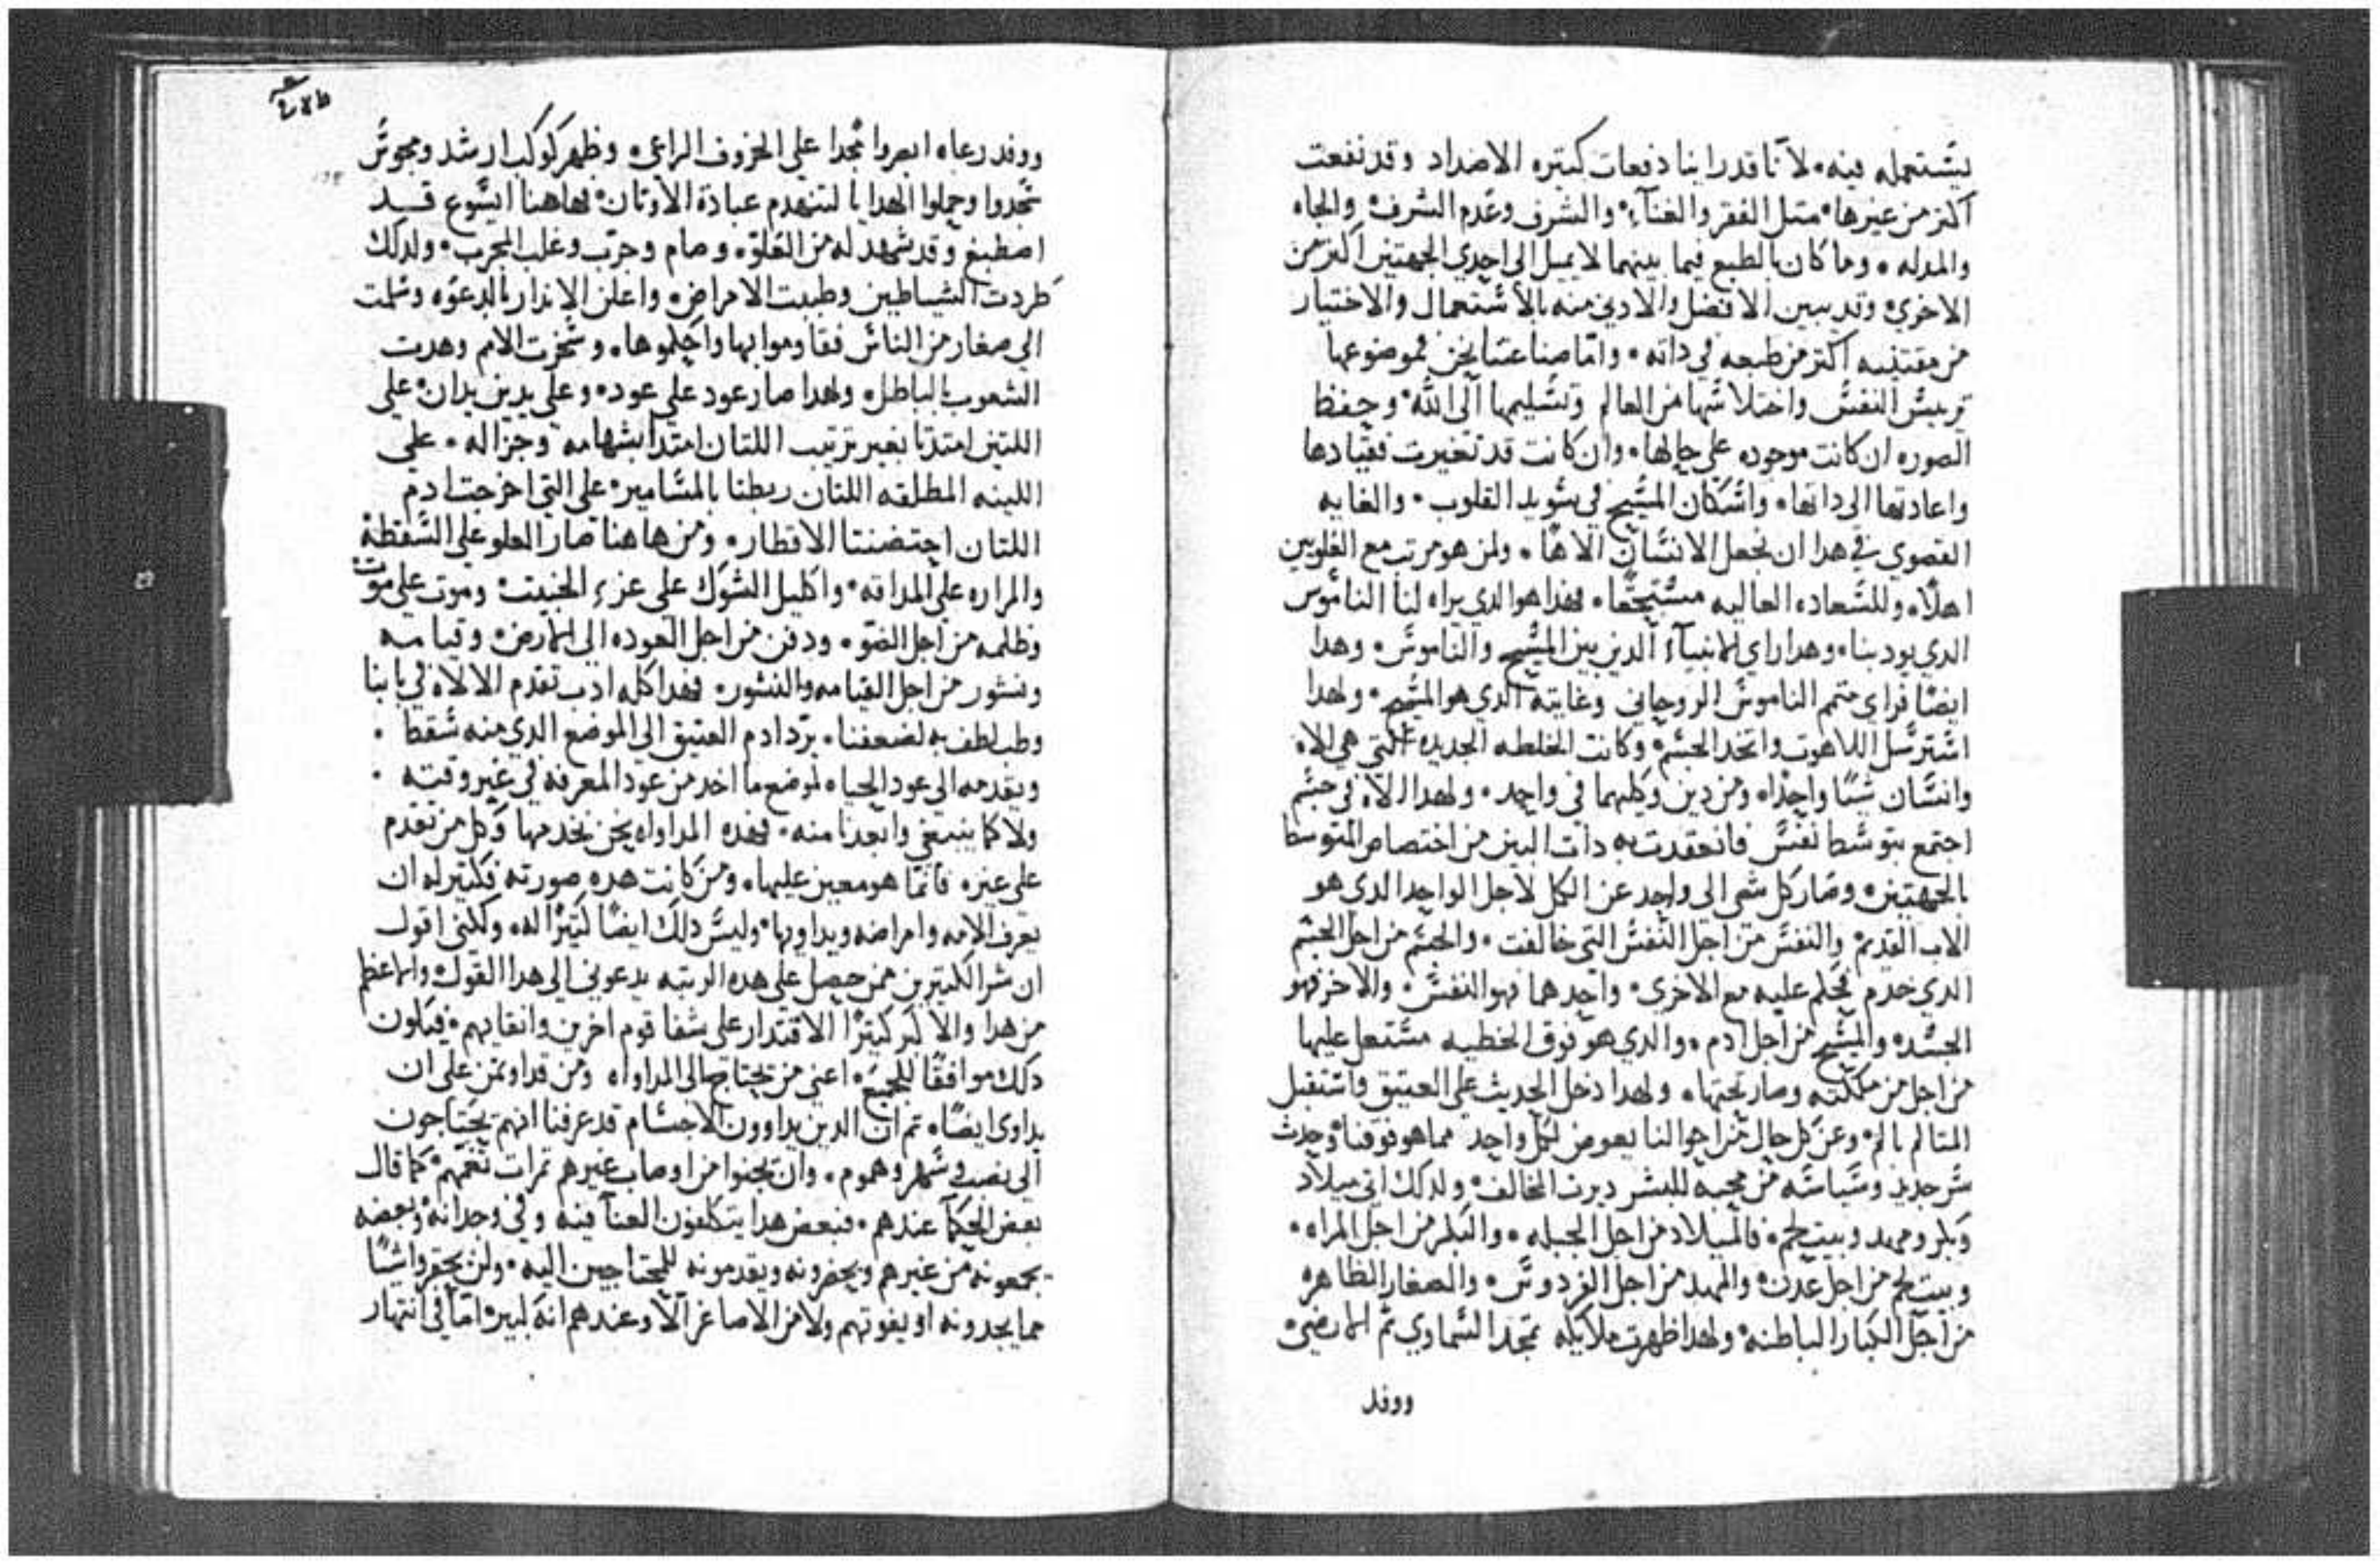 يشتعمله فينه، لاننا قد راينا دفعات كتيره الاضداد وقد نفعت
اكتر من غيرها، متل الفقر والغناء، والشرف وعدم الشرف، والجاه
والمدله، وما كان بالطبع فيما بينهما لا يميل الى احدي الجهتين اكتر من
الاخري، وقد يبين الافضل والادني منه بالاشتعمال والاختيار
من مقتنيه اكتر من طبعه في داته، واما صناعتنا نحن فموضوعها
تريش النفش واختلاشها من العالم وتشليمها الى الله، وحفظ
الصوره ان كانت موجوده على حالها، وان كانت قد تغيرت فقيادها
واعادتها الى داتها، واشكان المشيح في شويد القلوب، والغايه
القصوي في هدا ان نجعل الانشان الاها، ولمن هو مرتب مع العلويين
اهلاً، وللشعاده العاليه مشتحقًا، فهدا هو الدي يراه لنا الناموس
الدي يودبنا، وهدا راي الانبياء الدين بين المشيح والناموش، وهدا
ايضًا فراي متمم الناموش الروحاني وغايته الدي هو المشيح، ولهدا
اشترشل اللاهوت واتخد الجشم، وكانت الخلطه الجديده التي هي الاه
وانشان شيًا واحدًا، ومن دين وكليهما في واحد، ولهدا الاله في جشم
اجتمع بتوشط نفش فانعقدت به دات البين من اختصاص المتوسط
بالجهتين، وصار كل شي الى واحد عن الكل لاجل الواحد الدي هو
الاب القديم، والنفش من اجل النفش التي خالفت، والجشم من اجل الجشم
الدي خدم فحكم عليه مع الاخري، واحدهما فهو النفش، والاخر فهو
الجشد، والمشيح من اجل ادم، والدي هو فوق الخطيه مشتعل عليها
من اجل من مكنته وصار تحتها، ولهدا دخل الحديث على العتيق واشتقبل
المتالم بالم، وعن كل حال من احوالنا يعوض لكل واحد مما هو فوقنا، وحدث
شر جديد وشياشه من محبه للبشر دبرت المخالف، ولدلك اتى ميلاد
وبكر ومهد وبيت لحم، فالميلاد من اجل الجبله، والبكر من اجل المراه،
وبيت لحم من اجل عدن، والمهد من اجل الفردوش، والصغار الظاهره
من اجل الكبار الباطنه، ولهدا ظهرت ملايكه تمجد الشماوي تم الارضي،
ووفد
ووفد رعاه ابصروا مجدا على الخروف الراعي، وظهر كوكب ارشد ومجوش
شجدوا وحملوا الهدايا لتنهدم عبادة الاوتان، هاهنا ايشوع قد
اصطبغ وقد شهد له من العلو، وصام وجرب وغلب المجرب، ولدلك
طردت الشياطين وطبت الامراض، واعلن الاندار بالدعوه وشلمت
الى صغار من الناش فقاوموا بها واحكموها، وشخرت الامم وهدت
الشعوب بالباطل، ولهدا صار عود على عود، وعلى يدين يدان، على
اللتين امتدتا بغير ترتيب اللتان امتدا بشهامه وجزاله، على
اللينه المطلقه اللتان ربطتا بالمشامير، على التي اخرجت ادم
اللتان احتضنتا الاقطار، ومن هاهنا صار العلو على الشقطه
والمراره على المداقه، واكليل الشوك على عز الخبيت، وموت على موت
وظلمه من اجل الضو، ودفن من اجل العوده الى الارض، وقيامه
ونشور من اجل القيامه والنشور، فهدا كله ادب تقدم الالاه في بابنا
وطب لطف به لضعفنا، يرد ادم العتيق الى الموضع الدي منه شقط،
ويقدمه الى عود الحياه لموضع ما اخد من عود المعرفه في غير وقته،
ولا كما ينبغي وابعدنا منه، فهده المداواه نحن نخدمها وكل من تقدم
على غيره فانما هو معين عليها، ومن كانت هده صورته فكتير له ان
يعرف الامه وامراضه ويداويها، وليش دلك ايضًا كتيرًا له، ولكنني اقول
ان شر الكتيرين ممن حصل على هده الرتبه يدعوني الى هدا القول، والاعظم
من هدا والاكبر كتيرًا الاقتدار على شفا قوم اخرين وانقايهم، فيكون
دلك موافقًا للجميع، اعني من يحتاج الى المداواه ومن قد اوتمن على ان
يداوي ايضًا، تم ان الدين يداوون الاجشام قد عرفنا انهم يحتاجون
الى نصب وشهر وهموم، وان يجنوا من اوصاب غيرهم تمرات تغمهم، كما قال
بعض الحكما عندهم، فبعض هدا يتكلفون العنا فيه وفي وجدانه، وبعضه
يجمعونه من غيرهم ويحضرونه ويقدمونه للمحتاجين اليه، ولن يحقروا شيًا
مما يجدونه او يفوتهم ولا من الاصاغر الا وعندهم انه كبير، اما في انتهار